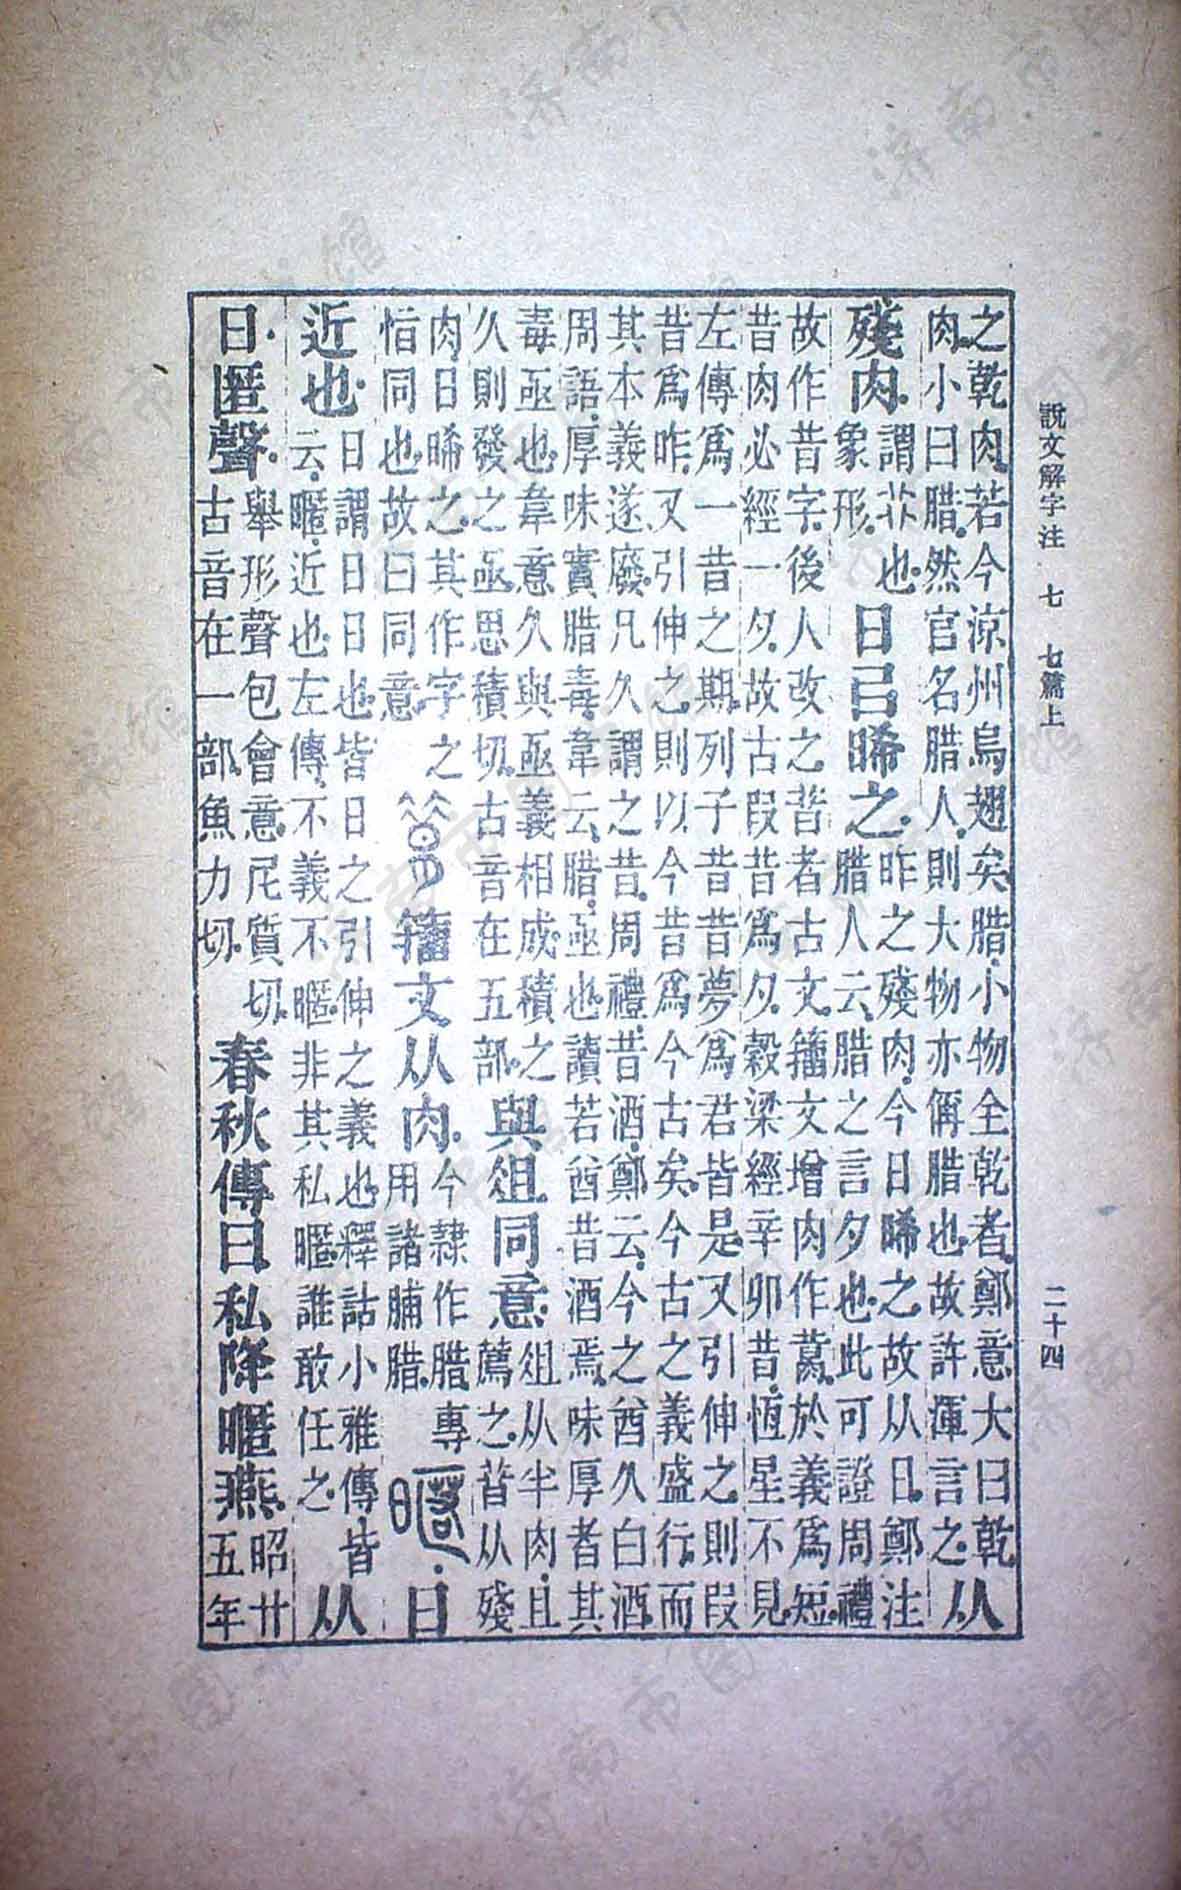 說文解字注 七 七篇上 二十四
之乾肉若今涼州烏翅矣腊小物全乾者鄭意大曰乾
肉小曰腊然官名腊人則大物亦偁腊也故許渾言之
从
殘肉
謂也
象形
日㠯晞之
昨之殘肉今日晞之故从日鄭注
腊人云腊之言夕也此可證周禮
故作昔字後人改之昔者古文籒文增肉作於義爲短
昔肉必經一夕故古叚昔爲夕穀梁經辛卯昔恆星不見
左傳爲一昔之期列子昔昔夢爲君皆是又引伸之則叚
昔爲昨又引伸之則以今昔爲今古矣今古之義盛行而
其本義遂廢凡久謂之昔周禮昔酒鄭云今之酋久白酒
周語厚味實腊毒韋云腊亟也讀若酋昔酒焉味厚者其
毒亟也韋意久與亟義相成積之
久則發之亟思積切古音在五部
與俎同意
俎从半肉且
薦之昔从殘
肉日晞之其作字之
恉同也故曰同意
籒文从肉
今隸作腊專
用諸脯腊
暱
日
近也
日謂日日也皆日之引伸之義也釋詁小雅傳皆
云暱近也左傳不義不暱非其私暱誰敢任之
从
日匿聲
舉形聲包會意尼質切
古音在一部魚力切
春秋傳曰私降暱燕
昭廿
五年